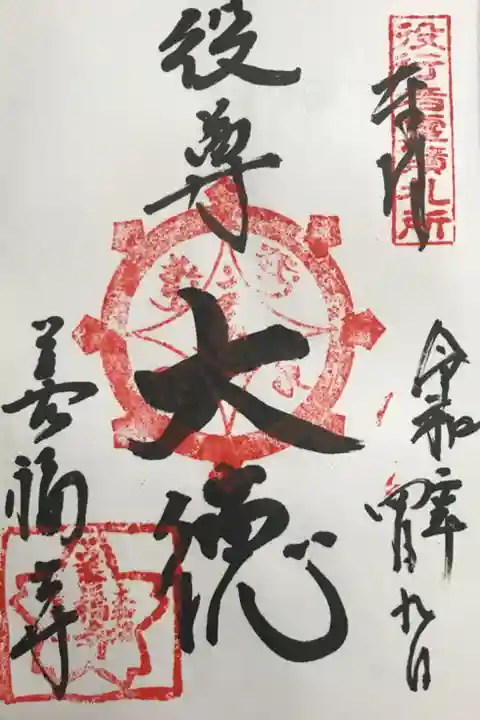 役行者霊蹟札所
奉拝
役尊
大徳
令和二年四月九日
善福寺